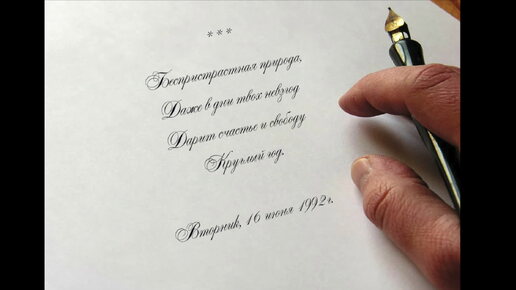 * * *
Беспристрастная природа,
Даже в дни твох невзгод
Дарит счастье и свободу
Круглый год.
Вторник, 16 июня 1992г.